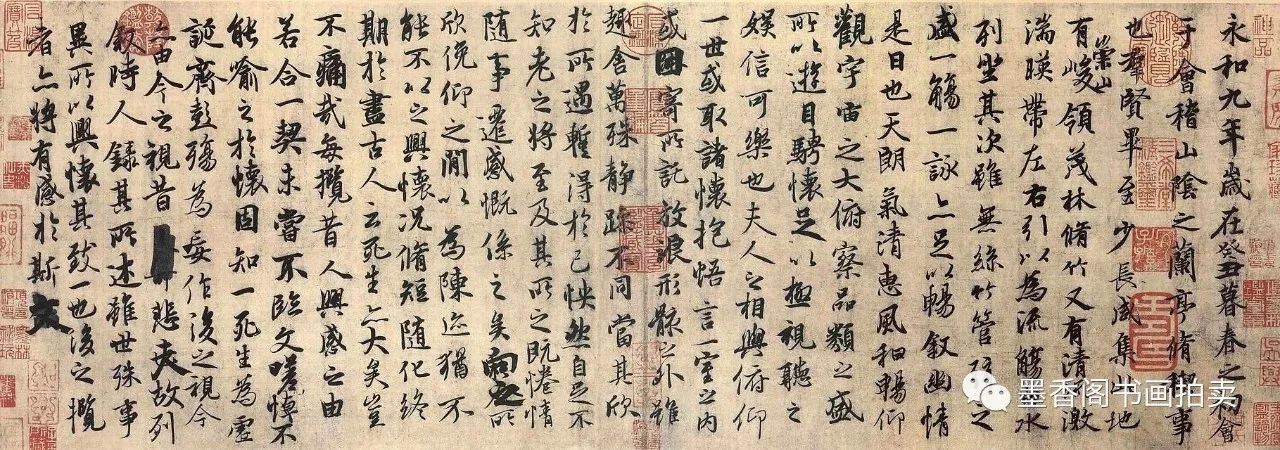 永和九年歲在癸丑暮春之初會
于會稽山陰之蘭亭脩禊事
也羣賢畢至少長咸集此地
有崇山峻領茂林脩竹又有清流激
湍暎帶左右引以為流觴曲水
列坐其次雖無絲竹管弦之
盛一觴一詠亦足以暢敘幽情
是日也天朗氣清惠風和暢仰
觀宇宙之大俯察品類之盛
所以遊目騁懷足以極視聽之
娛信可樂也夫人之相與俯仰
一世或取諸懷抱悟言一室之內
或因寄所託放浪形骸之外雖
趣舍萬殊靜躁不同當其欣
於所遇暫得於己怏然自足不
知老之將至及其所之既惓情
隨事遷感慨係之矣向之所
欣俛仰之閒以為陳迹猶不
能不以之興懷況脩短隨化終
期於盡古人云死生亦大矣豈
不痛哉每攬昔人興感之由
若合一契未嘗不臨文嗟悼不
能喻之於懷固知一死生為虛
誕齊彭殤為妄作後之視今
亦由今之視昔悲夫故列
敘時人錄其所述雖世殊事
異所以興懷其致一也後之攬
者亦將有感於斯文
墨香阁书画拍卖